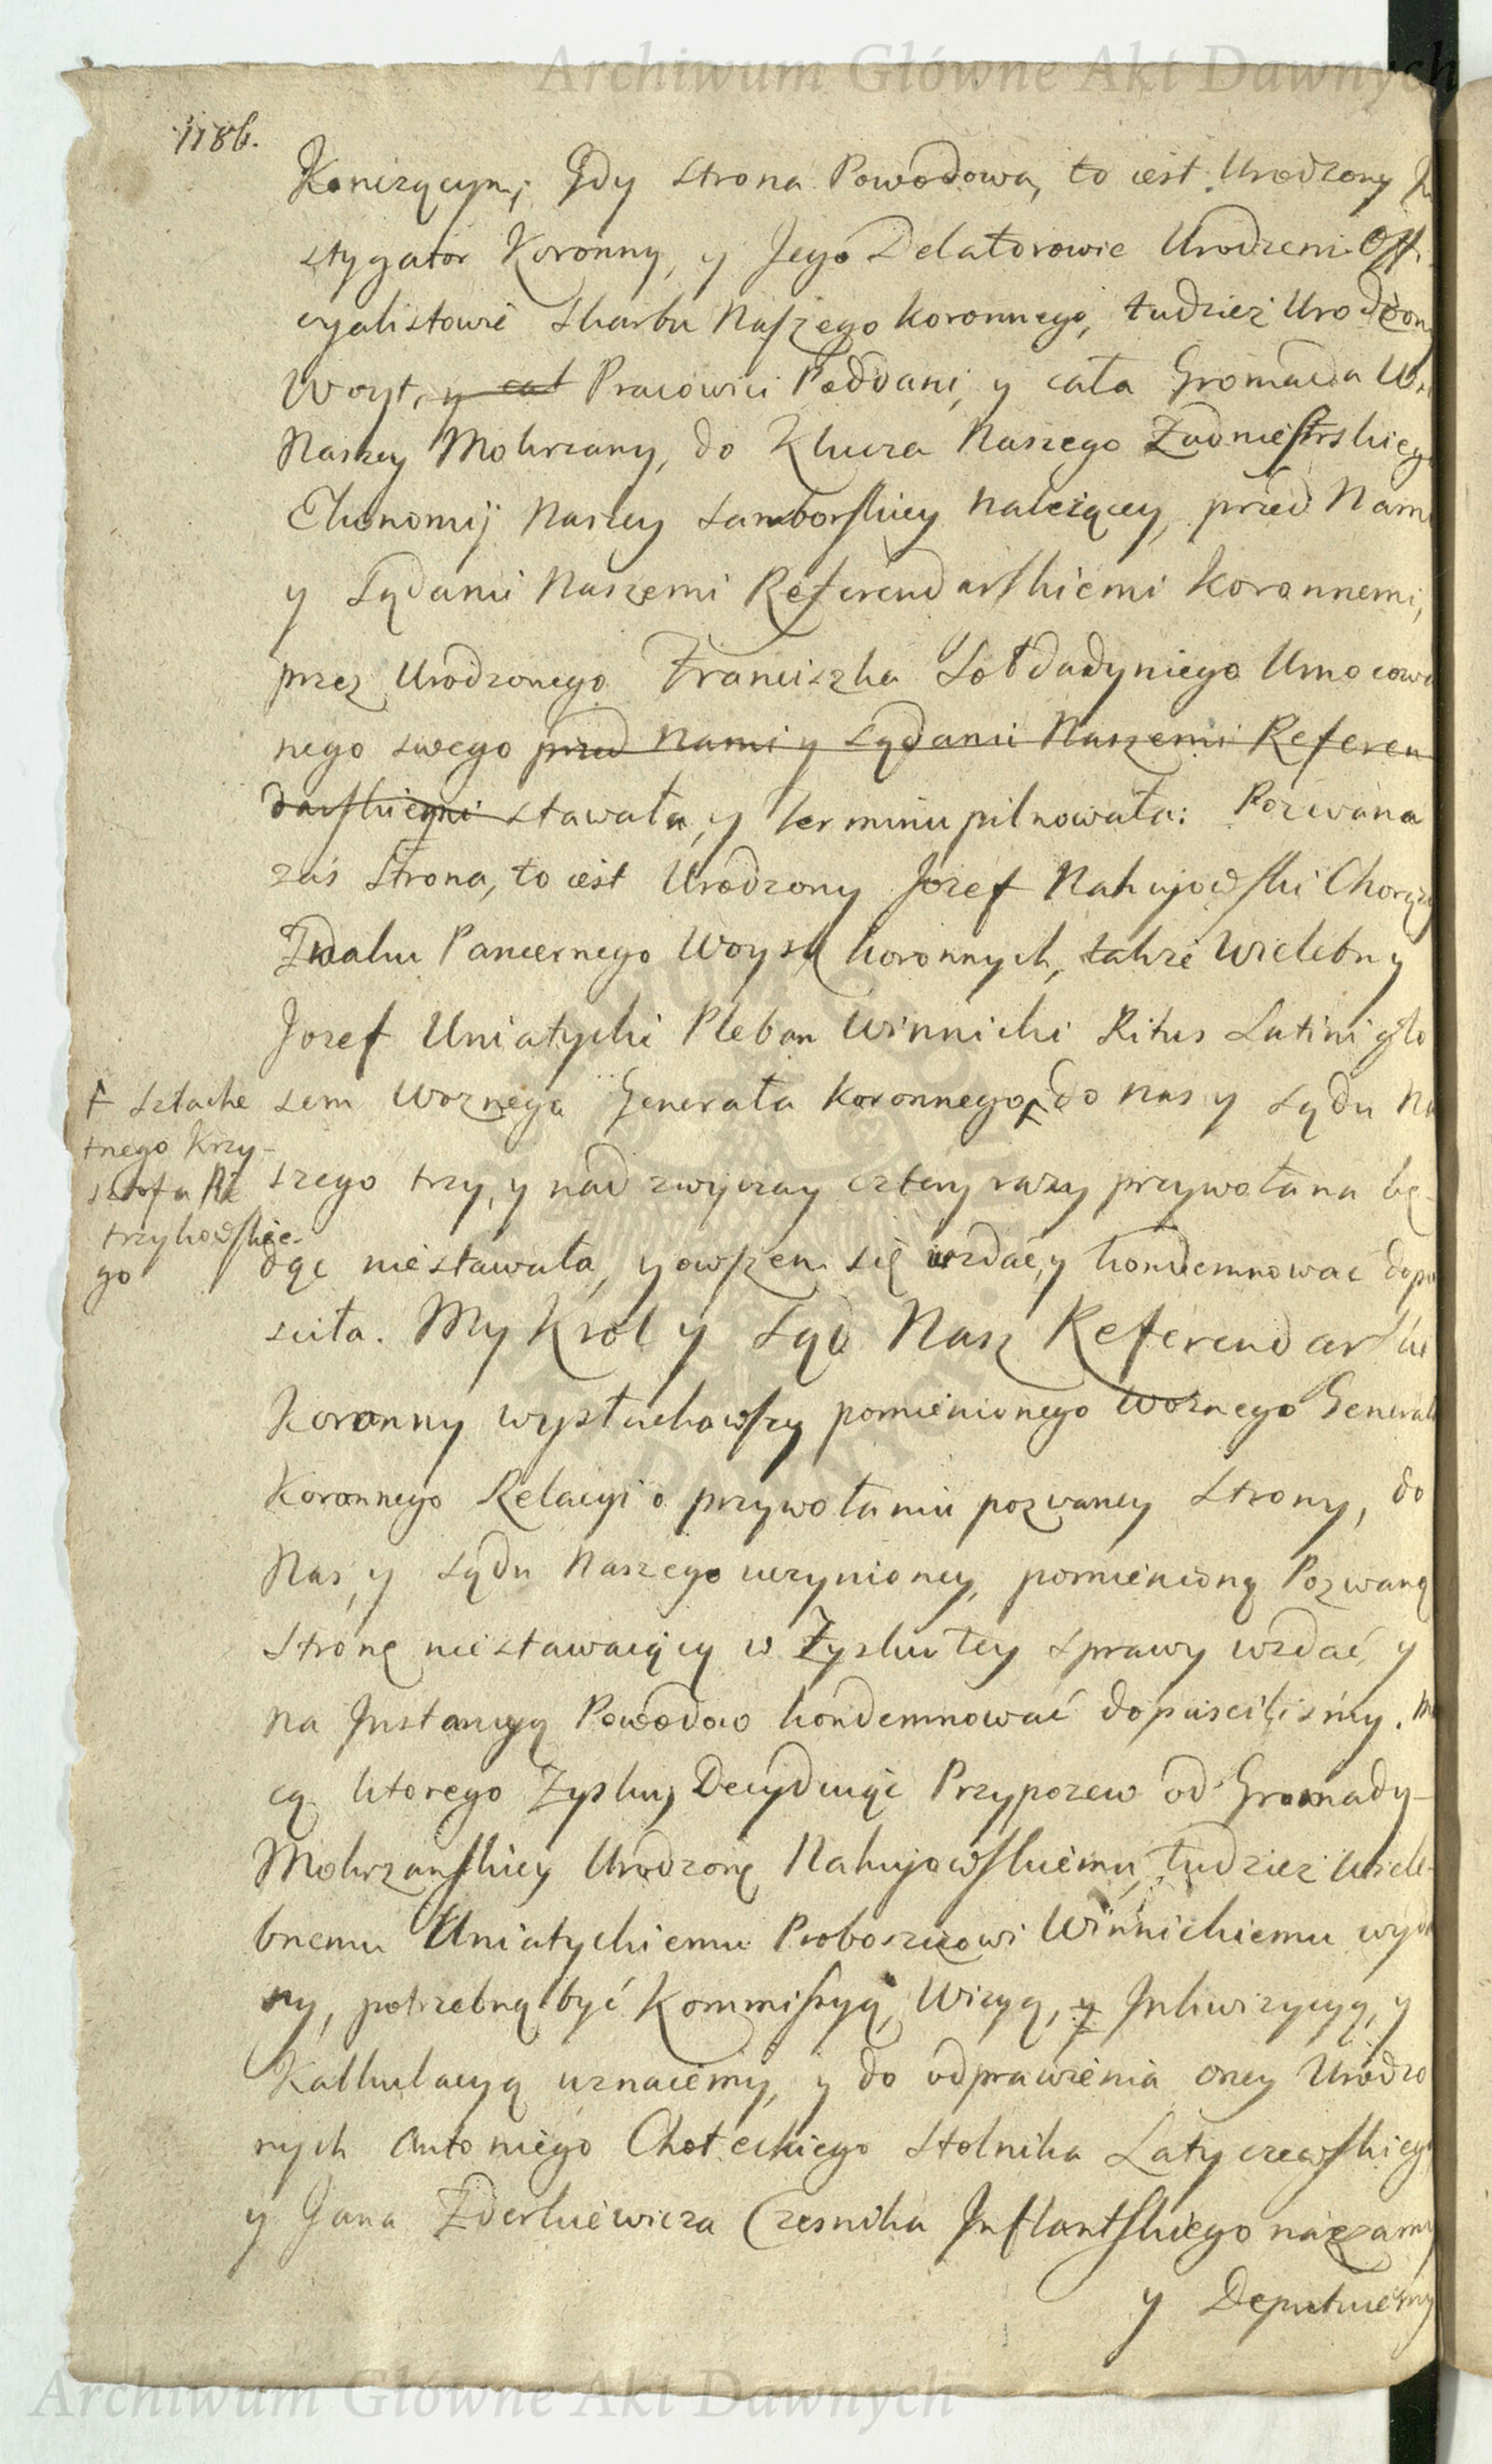 Archiwum Główne Akt Dawnych
1186.
Konczącym; Gdy Strona Powodowa, to iest Urodzony In
stygator Koronny, y Jego Delatorowie Urodzeni Offi
cyalistowie Skarbu Naszego koronnego, tudzież Urodzony
Woyt, y cał Pracowici Poddani, y cała Gromada Wsi
Naszey Mokrzany, do Klucza Naszego Zadniestrskiego
Ekonomij Naszey Samborskiey należącey, przed Nami
y Sądami Naszemi Referendarskiemi koronnemi,
przez Urodzonego Franciszka Umocowa
nego swego przed Nami y Sądami Naszemi Referen
darskiemi stawała, y Terminu pilnowała: Pozwana
zaś Strona, to iest Urodzony Jozef Nahujowski Chorąży
Znaku Pancernego Woysk koronnych, także Wielebny
Jozef Uniatycki Pleban Winnicki Ritus Latini gło
sem Woznego Generała koronnego do nas y Sądu Na
Szlache
tnego Krzy-
sztofa Pie
trzykowskie-
go
szego trzy, y nad zwyczay cztery razy przywołana bę-
dąc niestawała, y owszem się wzdać, y kondemnować dopu
sciła. My Krol y Sąd Nasz Referendarski
Koronny wysłuchawszy pomienionego Woznego Generała
Koronnego Relacyi o przywołaniu pozwaney Strony, do
Nas, y Sądu Naszego uczynioney, pomienioną Pozwaną
Stronę niestawaiącą w Zysku tey sprawy wzdać y
na Instancyą Powodow kondemnować dopuscilismy. Mo
cą ktorego Zysku, Decyduiąc Przypozew od Gromady
Mokrzanskiey Urodzonę Nahujowskiemu, tudzież Wiele-
bnemu Uniatyckiemu Proboszczowi Winnickiemu wyda
ny, potrzebną być Kommissyą, Wizyą, y Inkwizycyą, y
Kalkulacyą uznaiemy, y do odprawienia oney Urodzo
nych Antoniego Chołeckiego Stolnika Latyczewskiego
y Jana Zderkiewicza Czesnika Inflantskiego naznaczamy
y Deputuiemy
Archiwum Główne Akt Dawnych